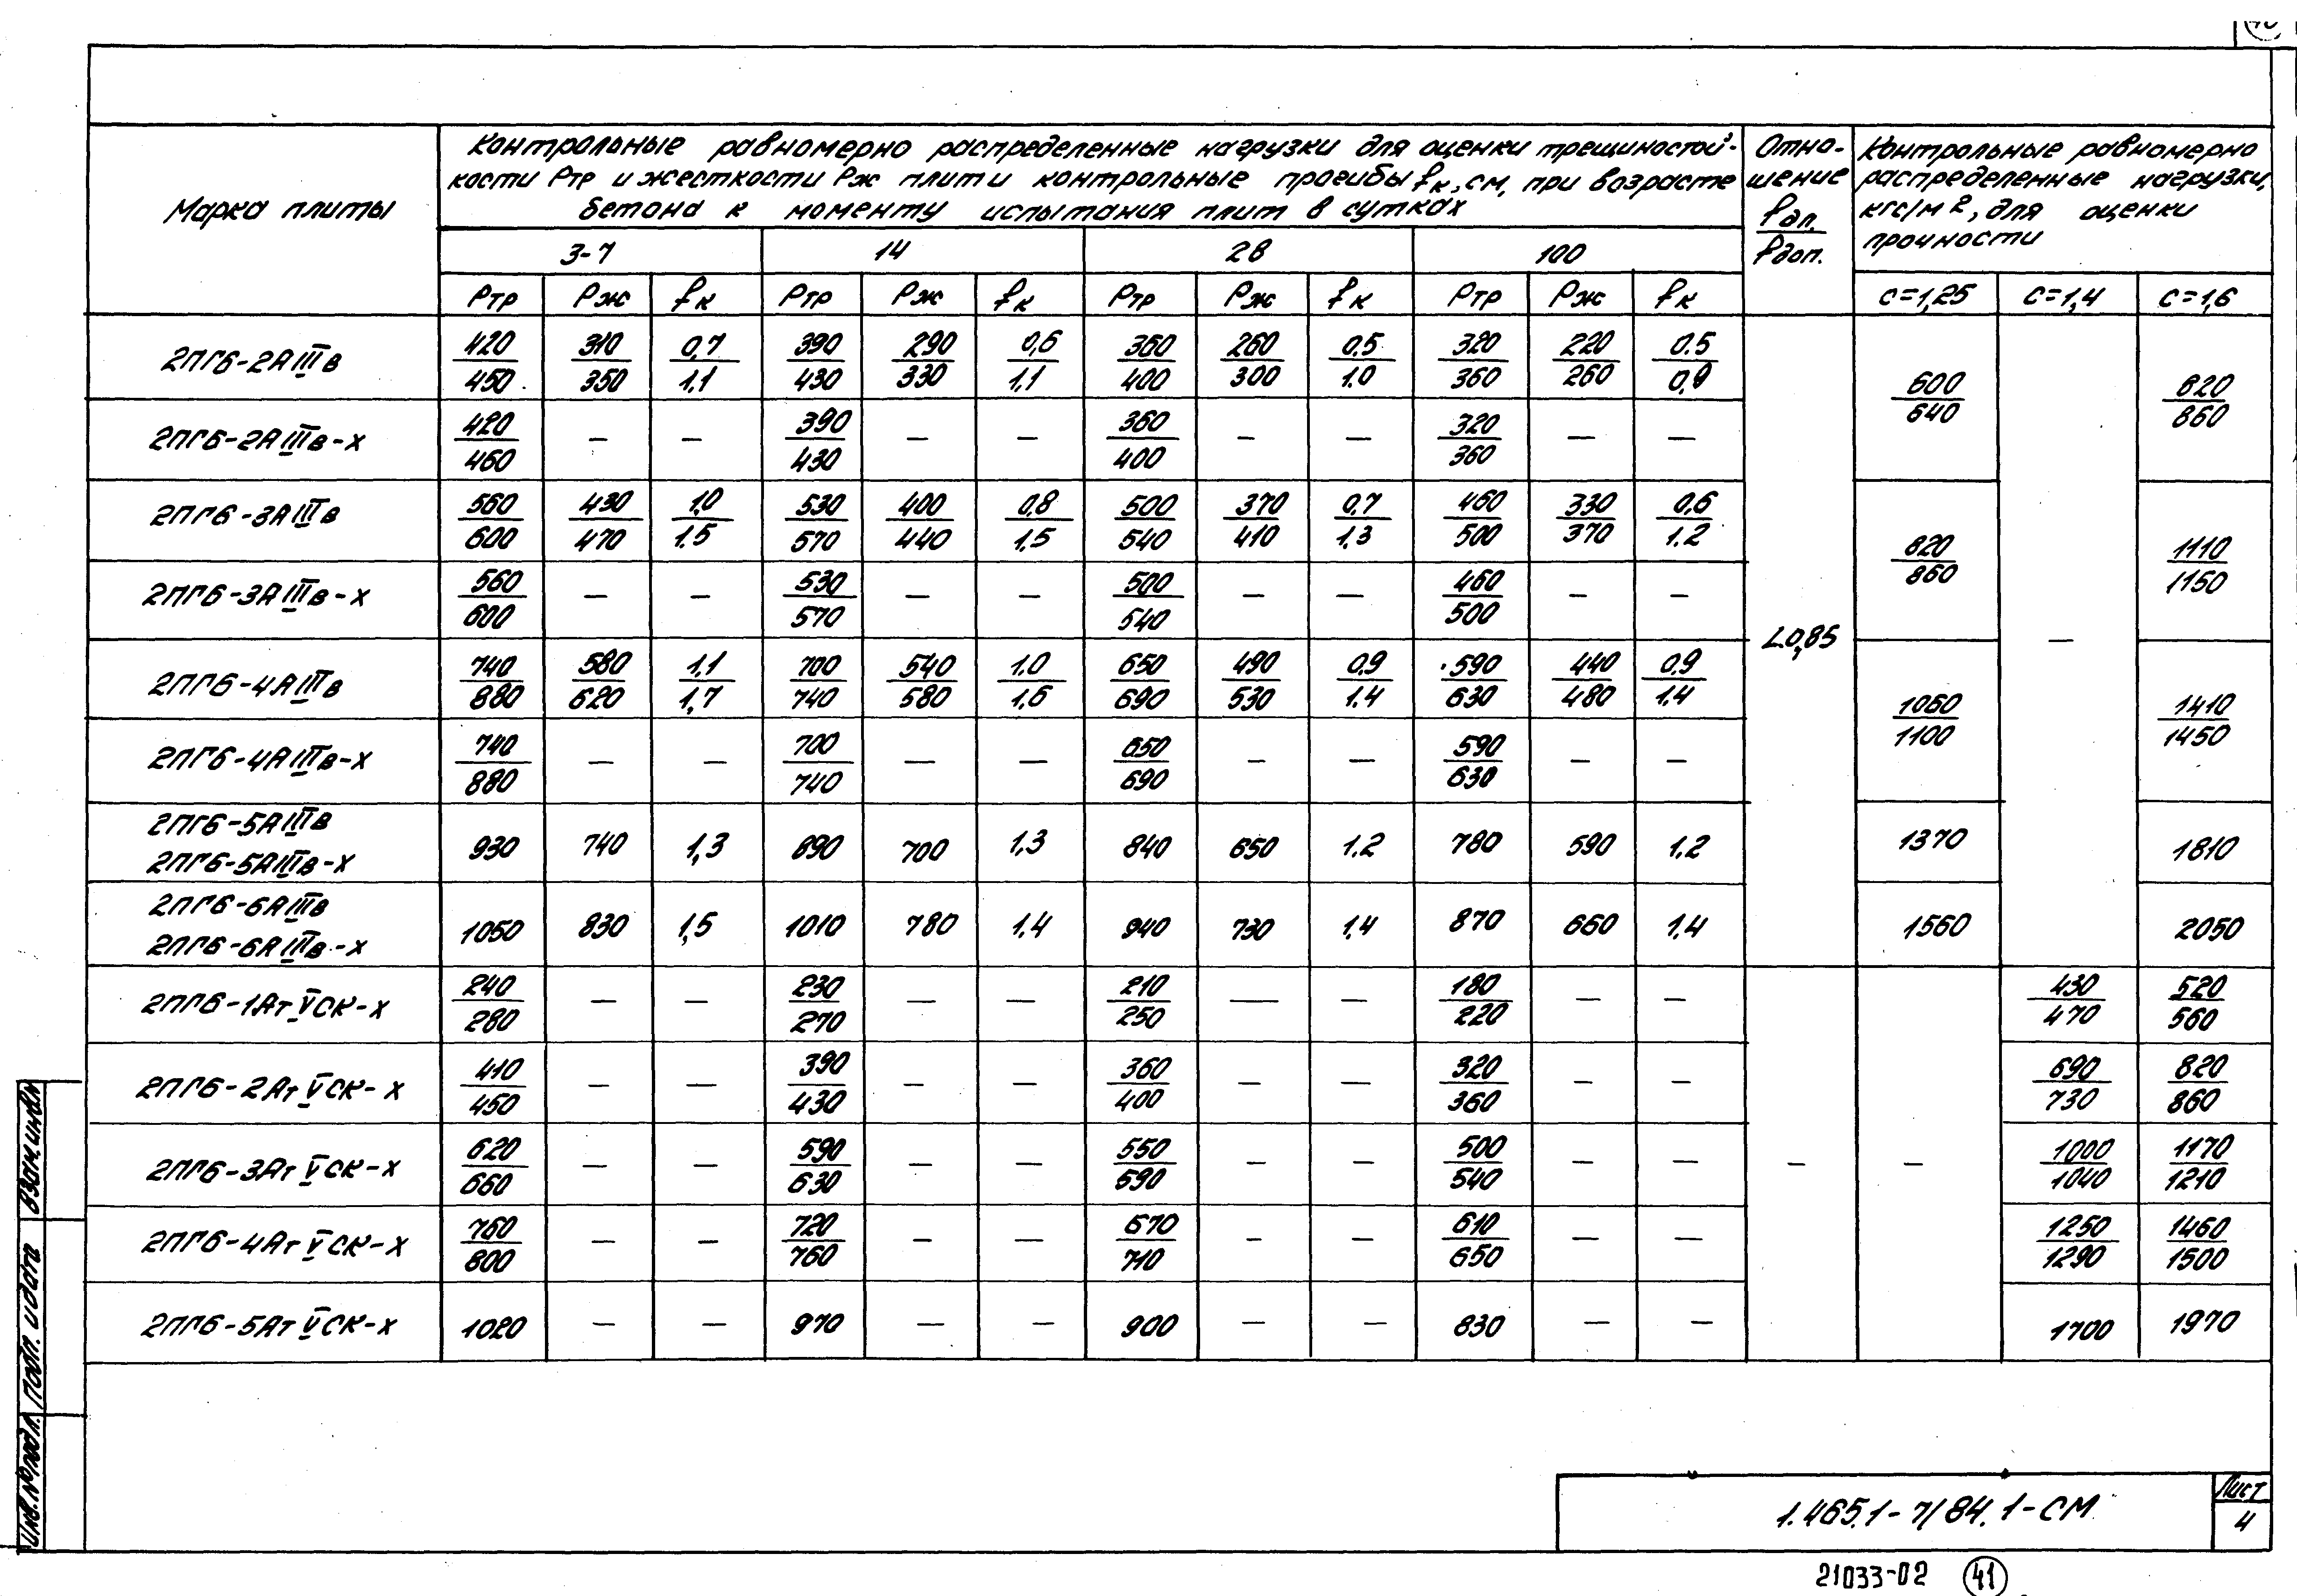 Марка плиты
Контрольные равномерно распределенные нагрузки для оценки трещиностой-
кости Ртр и жесткости Рж плит и контрольные прогибы fк, см, при возрасте
бетона к моменту испытания плит в сутках
Отно-
шение
fдл.
fдоп.
Контрольные равномерно
распределенные нагрузки,
кгс/м², для оценки
прочности
3-7 14 28 100
Ртр Рж fк Ртр Рж fк Ртр Рж fк Ртр Рж fк с=1,25 с=1,4 с=1,6
2ПГ6-2АIIIв 420/450 310/350 0,7/1,1 390/430 290/330 0,6/1,1 360/400 260/300 0.5/1.0 320/360 220/260 0.5/0,9 600/640 820/860
2ПГ6-2АIIIв-х 420/460 — — 390/430 — — 360/400 — — 320/360 — —
2ПГ6-3АIIIв 560/600 430/470 1,0/1.5 530/570 400/440 0,8/1,5 500/540 370/410 0,7/1,3 460/500 330/370 0,6/1.2 820/860 1110/1150
2ПГ6-3АIIIв-х 560/600 — — 530/570 — — 500/540 — — 460/500 — —
∠0,85 —
2ПГ6-4АIIIв 740/880 580/620 1,1/1,7 700/740 540/580 1.0/1,6 650/690 490/530 0,9/1.4 590/630 440/480 0.9/1,4 1060/1100 1410/1450
2ПГ6-4АIIIв-х 740/880 — — 700/740 — — 650/690 — — 590/630 — —
2ПГ6-5АIIIв
2ПГ6-5АIIIв-х 930 740 1,3 890 700 1.3 840 650 1.2 780 590 1.2 1370 1810
2ПГ6-6АIIIв
2ПГ6-6АIIIв-х 1050 830 1,5 1010 780 1.4 940 730 1.4 870 660 1.4 1560 2050
2ПГ6-1АтVСК-х 240/280 — — 230/270 — — 210/250 — — 180/220 — — 430/470 520/560
2ПГ6-2АтVСК-х 410/450 — — 390/430 — — 360/400 — — 320/360 — — 690/730 820/860
2ПГ6-3АтVСК-х 620/660 — — 590/630 — — 550/590 — — 500/540 — — — — 1000/1040 1170/1210
2ПГ6-4АтVСК-х 760/800 — — 720/760 — — 670/710 — — 610/650 — — 1250/1290 1460/1500
2ПГ6-5АтVСК-х 1020 — — 970 — — 900 — — 830 — — 1700 1970
Инв.№подл. Подп. и дата Взам.инв.№
1.465.1-7/84.1-СМ
Лист
4
21033-02 41